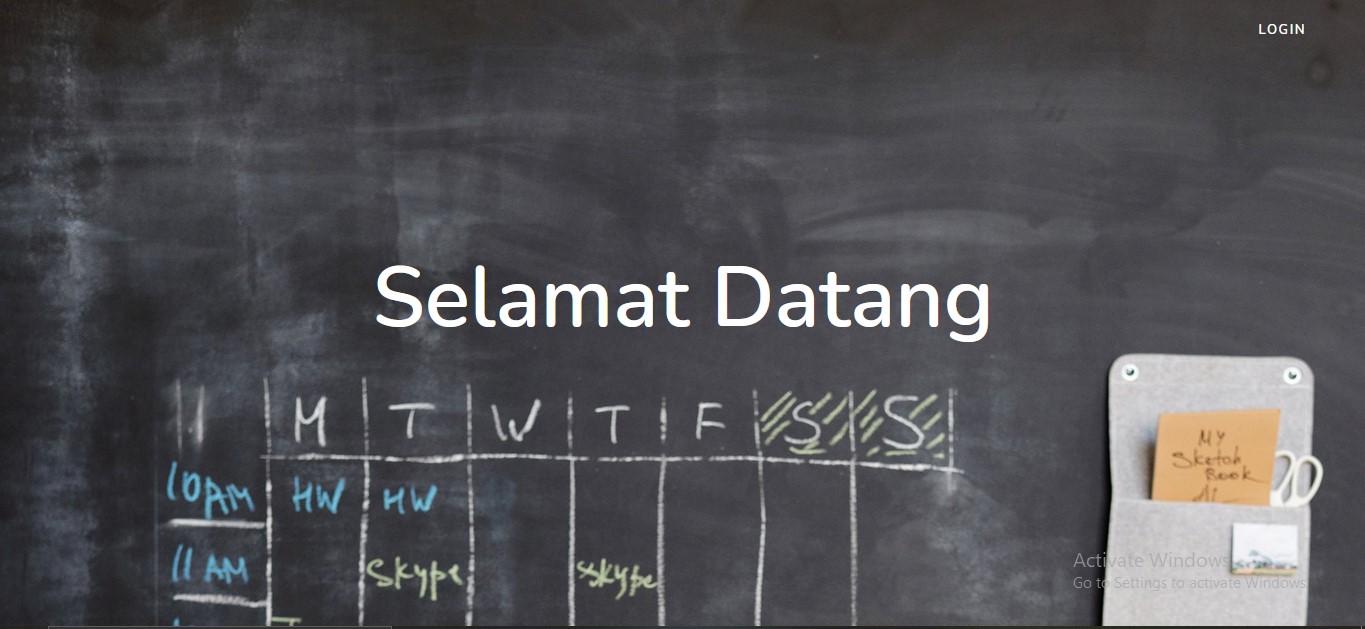 LOGIN
Selamat Datang
M T W T F S S
10AM HW HW
11 AM Skype Skype
MY
Sketch
Book
Activate Windows
Go to Settings to activate Windows.